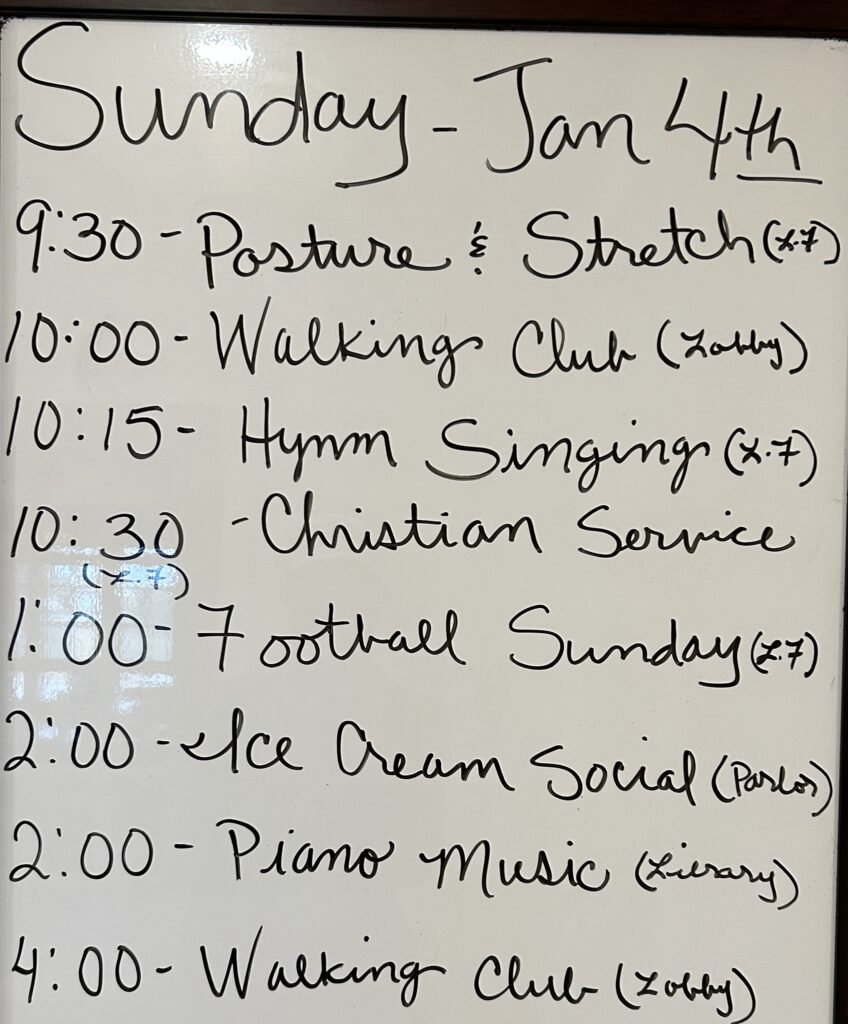 Sunday - Jan 4th
9:30 - Posture & Stretch (L.F)
10:00 - Walking Club (Lobby)
10:15 - Hymn Singing (L.F)
10:30 - Christian Service
(L.F)
1:00 - Football Sunday (L.F)
2:00 - Ice Cream Social (Parlor)
2:00 - Piano Music (Library)
4:00 - Walking Club (Lobby)